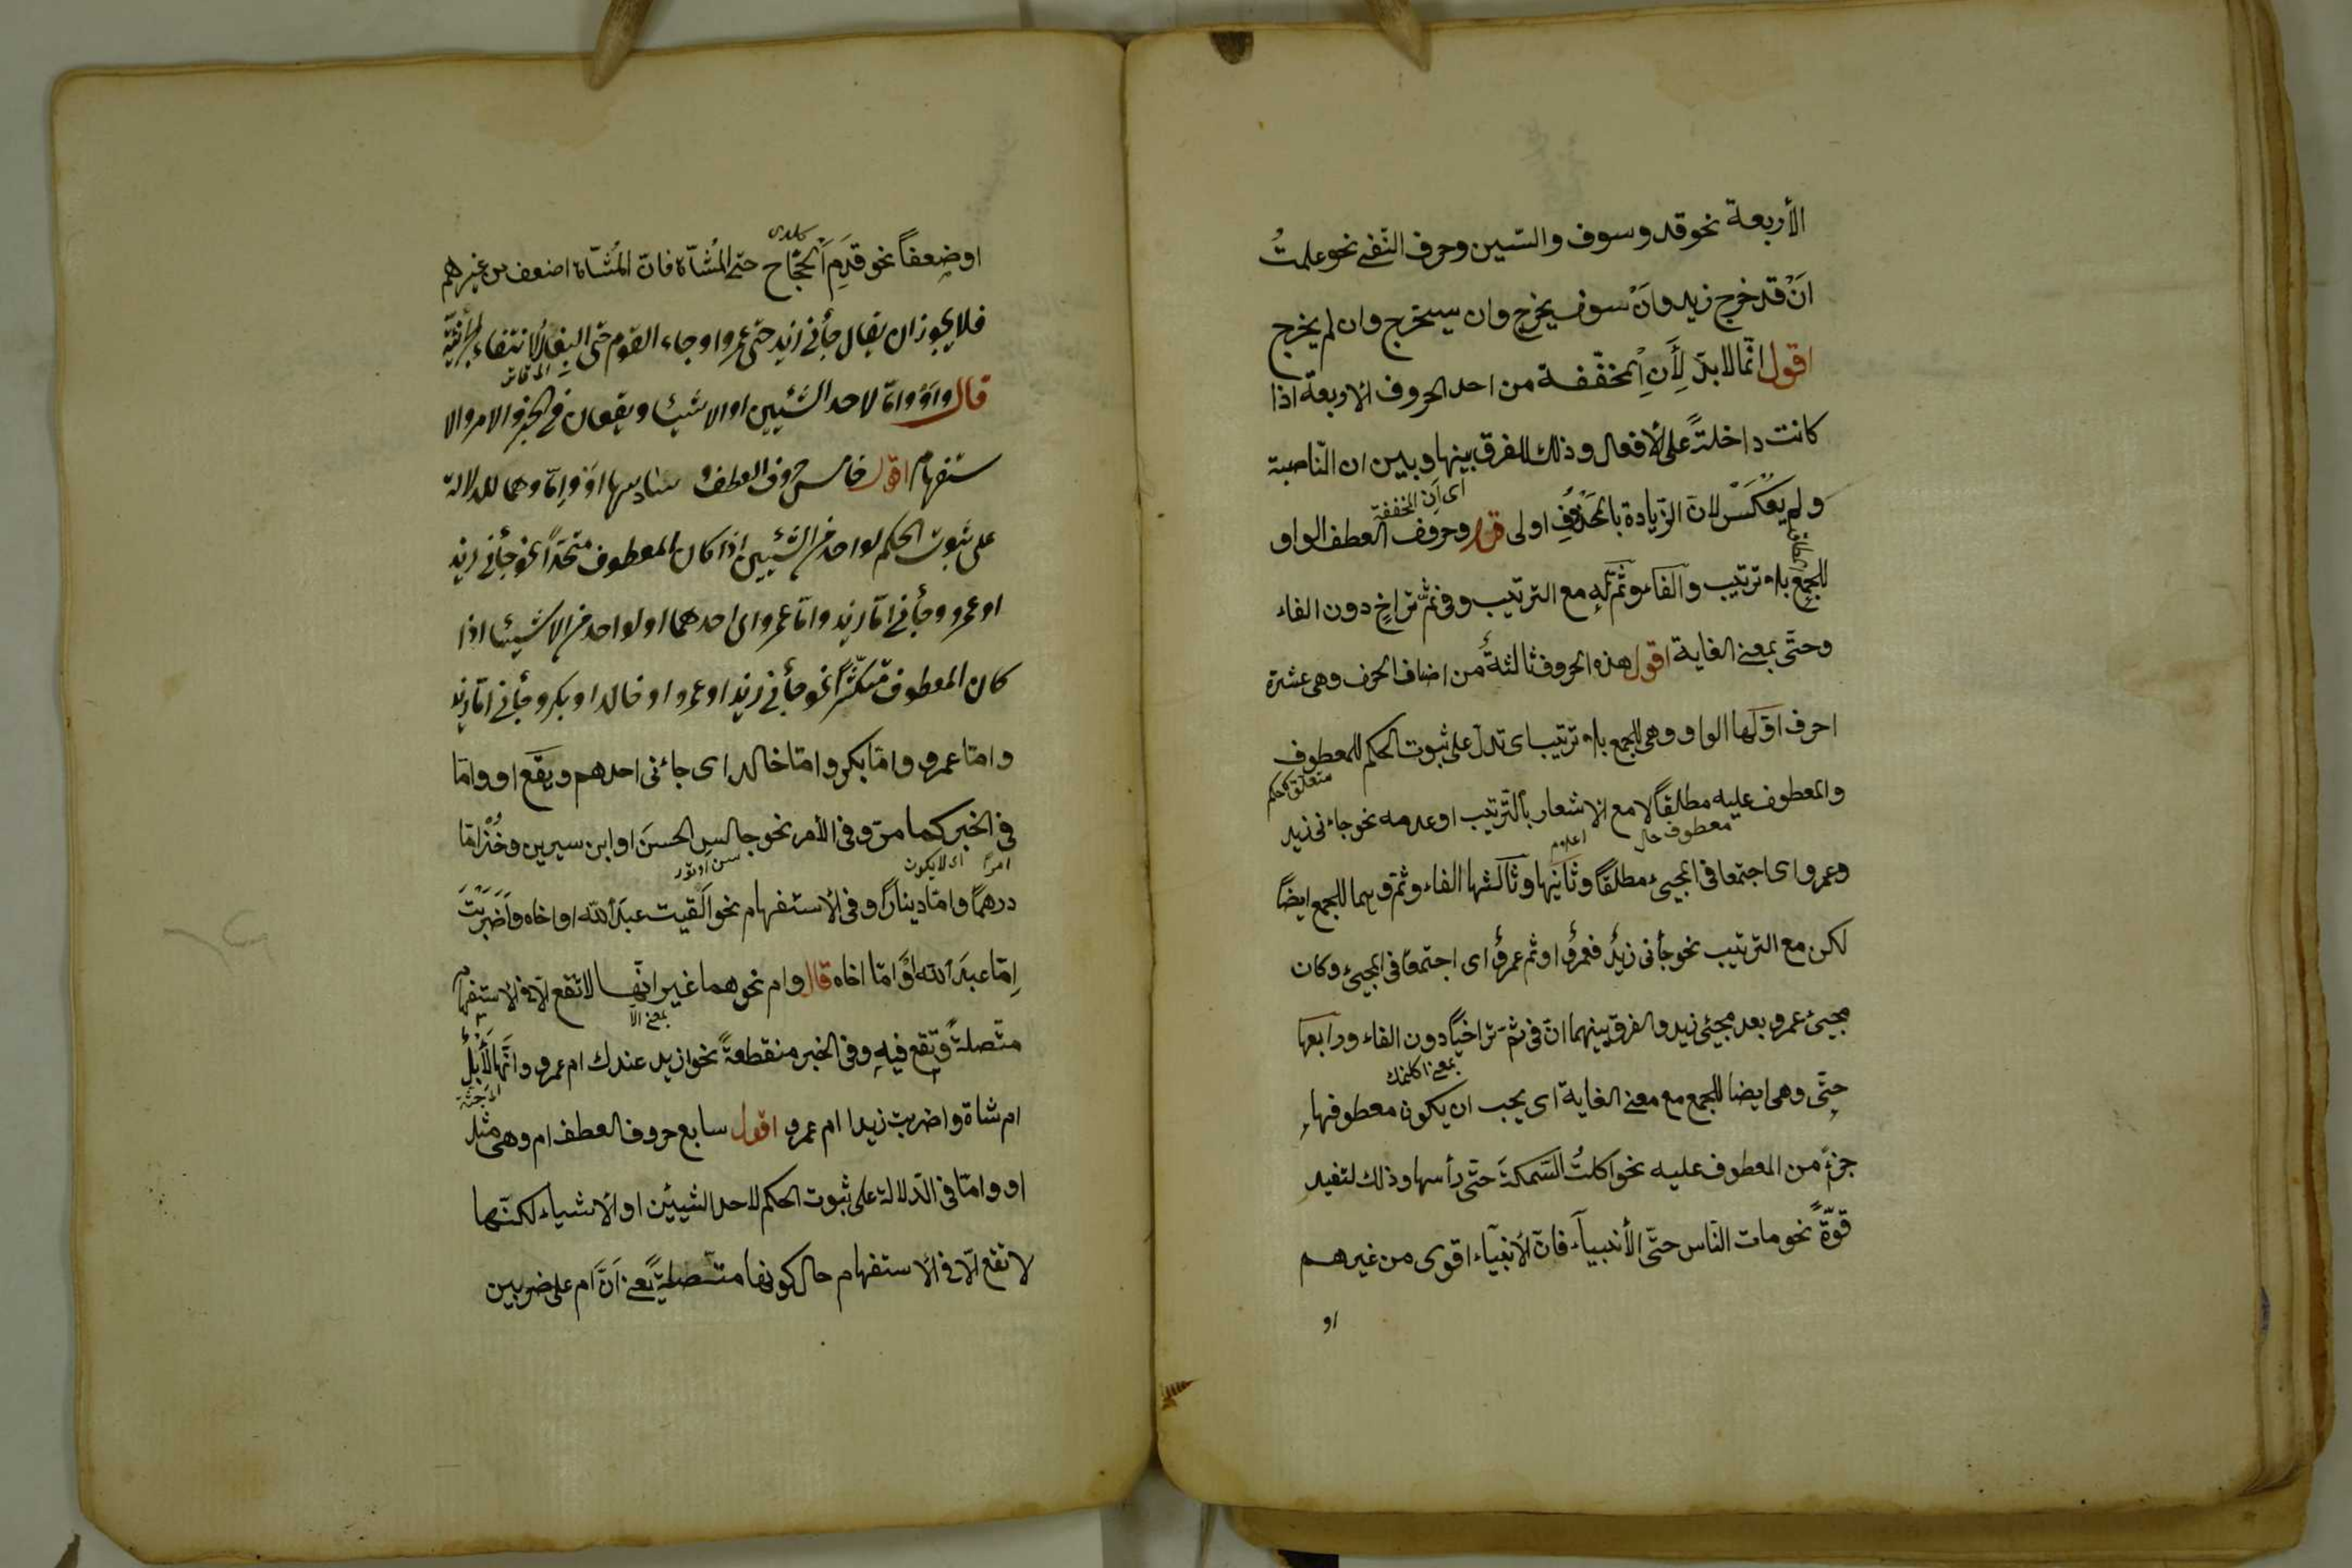 الأربعة نحو قد وسوف والسّين وحرف النّفى نحو علمتُ
انْ قد خرج زيد وانْ سوف يخرج وان سيخرج وان لم يخرج
اقول انّما لابدّ لِأَنِ المخفّفة من احد الحروف الاربعة اذا
كانت داخلةً على الافعال وذلك للفرق بينها وبين ان النّاصبة
اى اَنِ المخففة
ولم يعكس لانّ الزّيادة بالمحذوف اولى قال وحروف العطف الواو
للجمع بلا ترتيب والفاء وثمّ له مع الترتيب وفى ثمّ تراخٍ دون الفاء
وحتّى بمعنى الغاية اقول هذه الحروف ثالثةٌ من اصناف الحرف وهى عشرة
احرف اوّلها الواو وهى للجمع بلا ترتيب اى تدلّ على ثبوت الحكم للمعطوف
متعلق حكم
والمعطوف عليه مطلقًا لا مع الاشعار بالتّرتيب او عدمه نحو جاءنى زيد
معطوف حال
وعمرو اى اجتمعا فى المجيء مطلقًا وثانيها وثالثها الفاء وثمّ وهما للجمع ايضًا
لكن مع الترتيب نحو جأنى زيدٌ فعمروٌ او ثم عمروٌ اى اجتمعا فى المجيئ وكان
مجيئ عمرو بعد مجيئ زيد والفرق بينهما انّ فى ثمّ تراخيًا دون الفاء ورابعها
حتّى وهى ايضا للجمع مع معنى الغاية اى يجب ان يكون معطوفها
جزءً من المعطوف عليه نحو اكلتُ السّمكةَ حتّى رأسها وذلك لتفيد
قوّةً نحو مات النّاس حتّى الأنبيآء فانّ الانبيآء اقوى من غيرهم
او
اوضعفاً نحو قدِمَ الحجّاج حتى المُشاة فانّ المُشاة اضعف من غيرهم
فلا يجوز ان يقال جأنى زيد حتى عمرو او جاء القوم حتى البغار لانتفاء الجزئية
قال واَوْ وامّا لاحد الشّيئين او الاشياء ويقعان فى الخبر والامر والا
ستفهام اقول خامس حروف العطف وسادسها اَوْ واِمّا وهما للدلالة
على ثبوت الحكم لواحد من الشّيئين اذا كان المعطوف متحدًا نحو جأنى زيد
او عمرو وجأنى امّا زيد وامّا عمرو اى احدهما او لواحد من الاشياء اذا
كان المعطوف متكثّرًا نحو جأنى زيد او عمرو او خالد او بكر وجأنى امّا زيد
وامّا عمرو وامّا بكر وامّا خالد اى جاءنى احدهم ويقع او وامّا
فى الخبر كما مرّ وفى الأمر نحو جالسِ الحسنَ او ابن سيرين وخُذْ امّا
درهمًا وامّا دينارًا وفى الاستفهام نحو اَلقيت عبدَ الله او اخاه واَضربْتَ
اِمّا عبدَ الله واِمّا اخاه قال وام نحوهما غير انّها لا تقع الّا فى الاستفهام
بمعنى الّا
متّصلةً وتقع فيه وفى الخبر منقطعةً نحو ازيد عندك ام عمرو وانّها لَأبلٌ
ام شاة واضربت زيدا ام عمرو اقول سابع حروف العطف ام وهى مثل
او وامّا فى الدّلالة على ثبوت الحكم لاحد الشيئين او الاشياء لكنّها
لا تقع الّا فى الاستفهام حال كونها متّصلةً يعنى اَنّ ام على ضربين